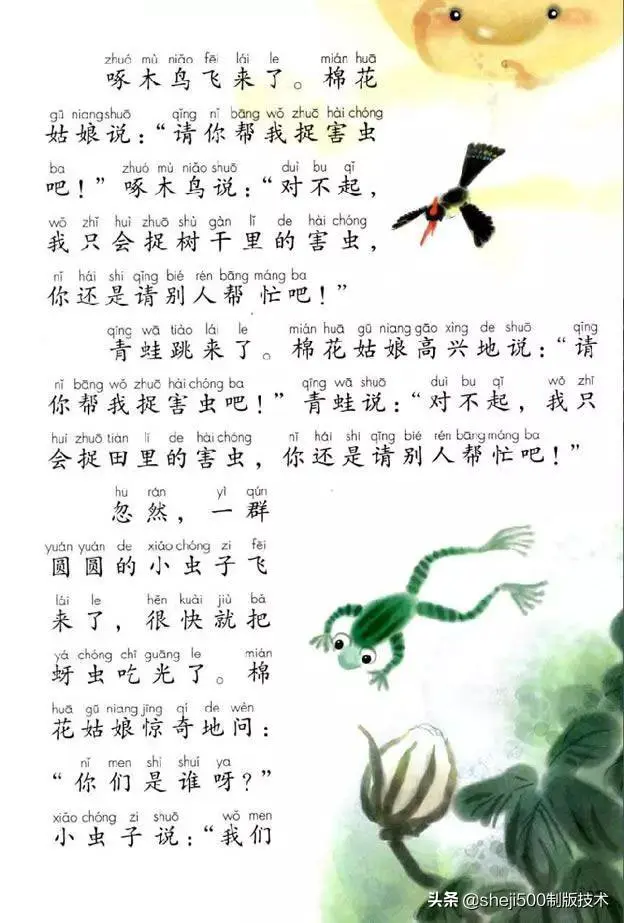 zhuó mù niǎo fēi lái le mián huā
啄木鸟飞来了。棉花
gū niang shuō qǐng nǐ bāng wǒ zhuō hài chóng
姑娘说：“请你帮我捉害虫
ba zhuó mù niǎo shuō duì bu qǐ
吧！”啄木鸟说：“对不起，
wǒ zhǐ huì zhuō shù gàn lǐ de hài chóng
我只会捉树干里的害虫，
nǐ hái shi qǐng bié rén bāng máng ba
你还是请别人帮忙吧！”
qīng wā tiào lái le mián huā gū niang gāo xìng de shuō qǐng
青蛙跳来了。棉花姑娘高兴地说：“请
nǐ bāng wǒ zhuō hài chóng ba qīng wā shuō duì bu qǐ wǒ zhǐ
你帮我捉害虫吧！”青蛙说：“对不起，我只
huì zhuō tián lǐ de hài chóng nǐ hái shi qǐng bié rén bāng máng ba
会捉田里的害虫，你还是请别人帮忙吧！”
hū rán yì qún
忽然，一群
yuán yuán de xiǎo chóng zi fēi
圆圆的小虫子飞
lái le hěn kuài jiù bǎ
来了，很快就把
yá chóng chī guāng le mián
蚜虫吃光了。棉
huā gū niang jīng qí de wèn
花姑娘惊奇地问：
nǐ men shì shuí ya
“你们是谁呀？”
xiǎo chóng zi shuō wǒ men
小虫子说：“我们
头条 @sheji500制版技术